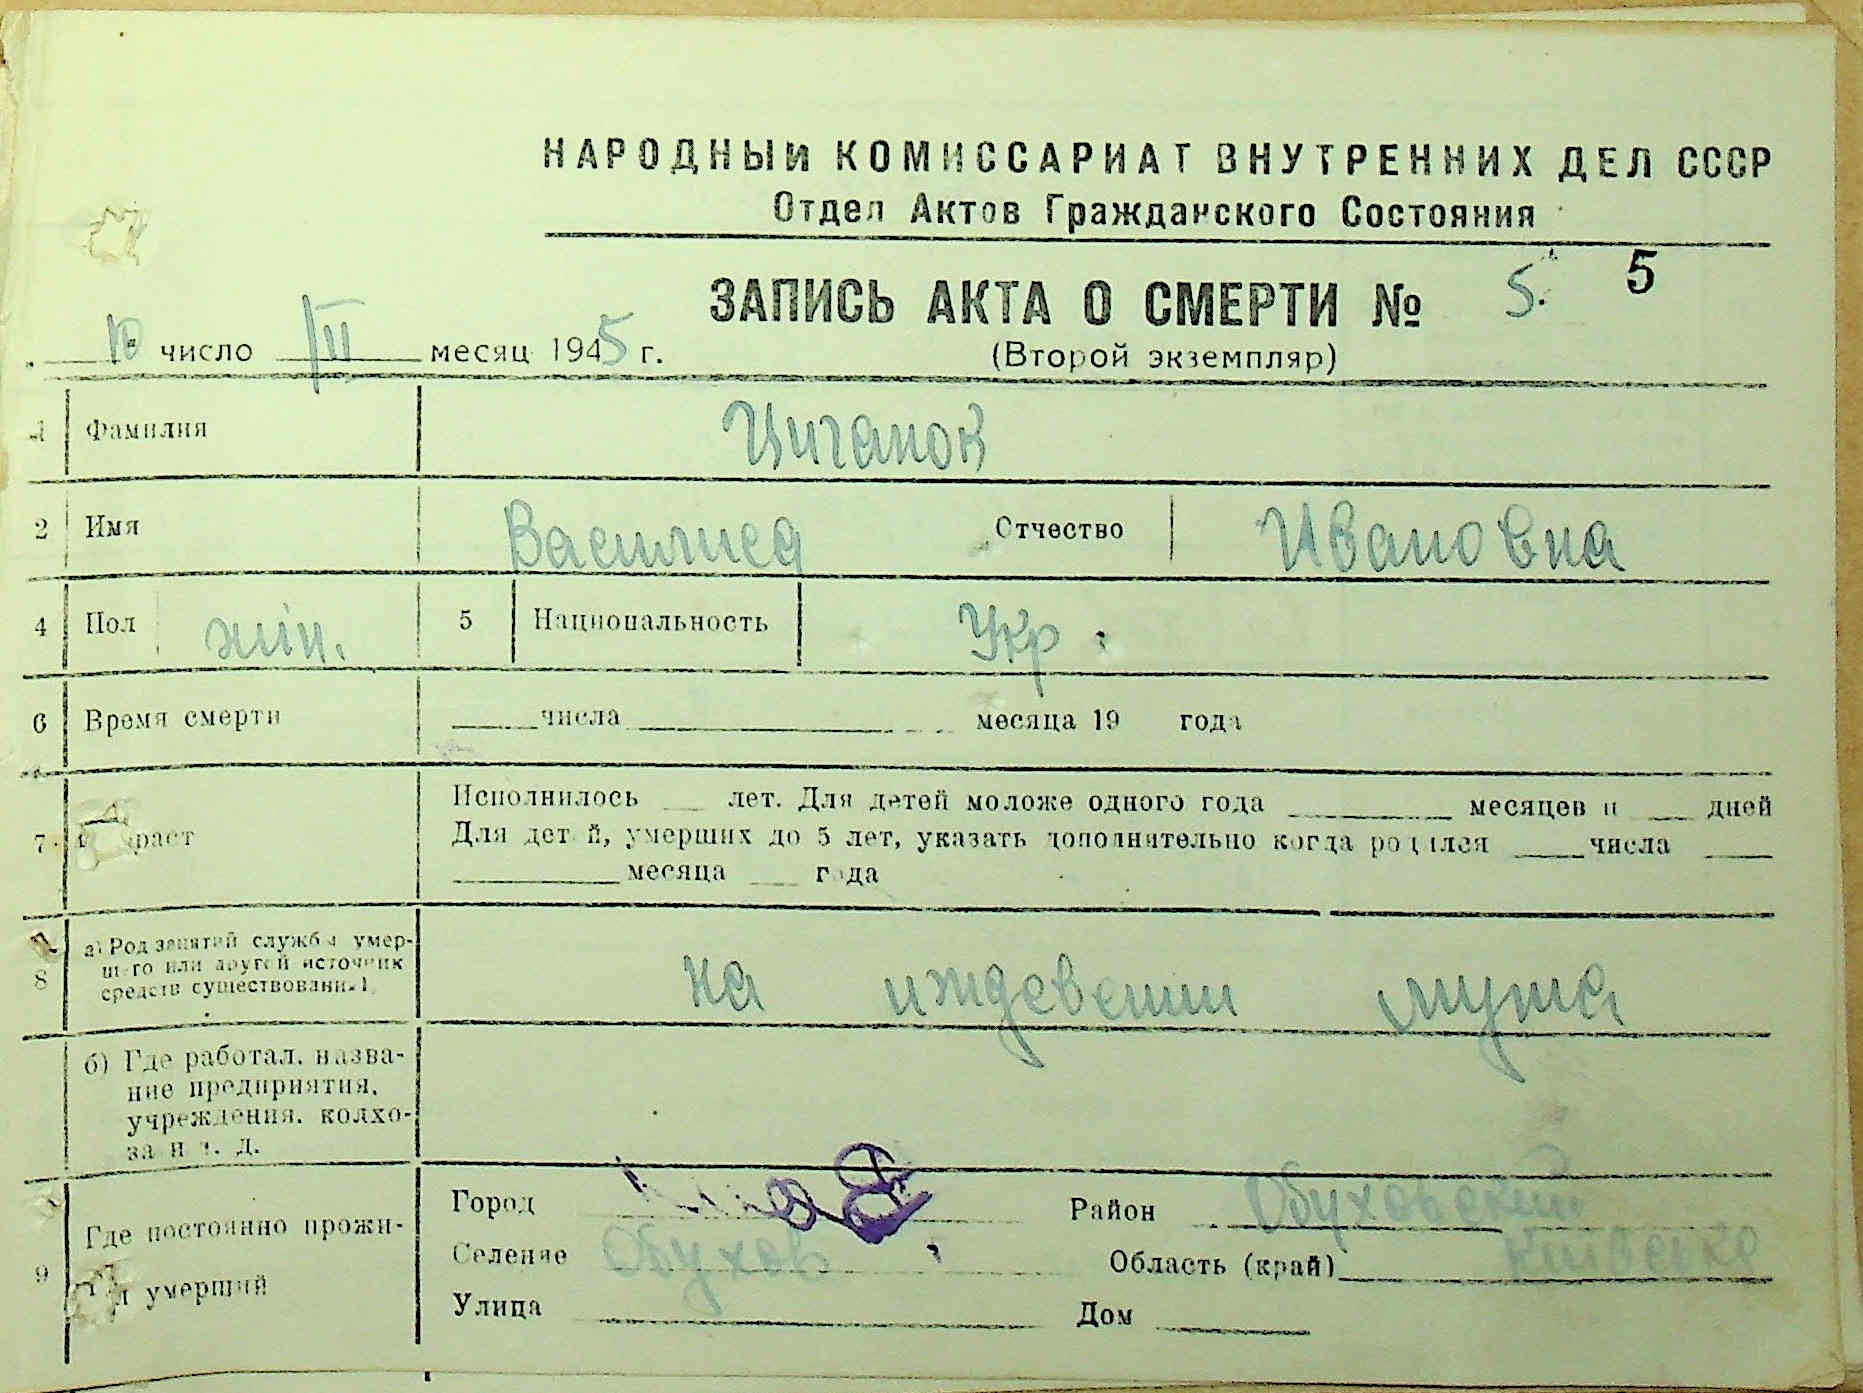 НАРОДНЫЙ КОМИССАРИАТ ВНУТРЕННИХ ДЕЛ СССР
Отдел Актов Гражданского Состояния
ЗАПИСЬ АКТА О СМЕРТИ № 5. 5
10 число III месяц 1945 г. (Второй экземпляр)
1 Фамилия Циганок
2 Имя Василиса Отчество Ивановна
4 Пол жін. 5 Национальность Укр.
6 Время смерти числа месяца 19 года
7 Исполнилось лет. Для детей моложе одного года месяцев и дней
Для детей, умерших до 5 лет, указать дополнительно когда родился числа
месяца года
8 а) Род занятий службы умер-
шего или другой источник
средств существования
на иждевении мужа
б) Где работал, назва-
ние предприятия,
учреждения, колхо-
за и т. д.
9 Где постоянно прожи-
л умерший
Город Район Обуховский
Селение Обухов Область (край) Київське
Улица Дом